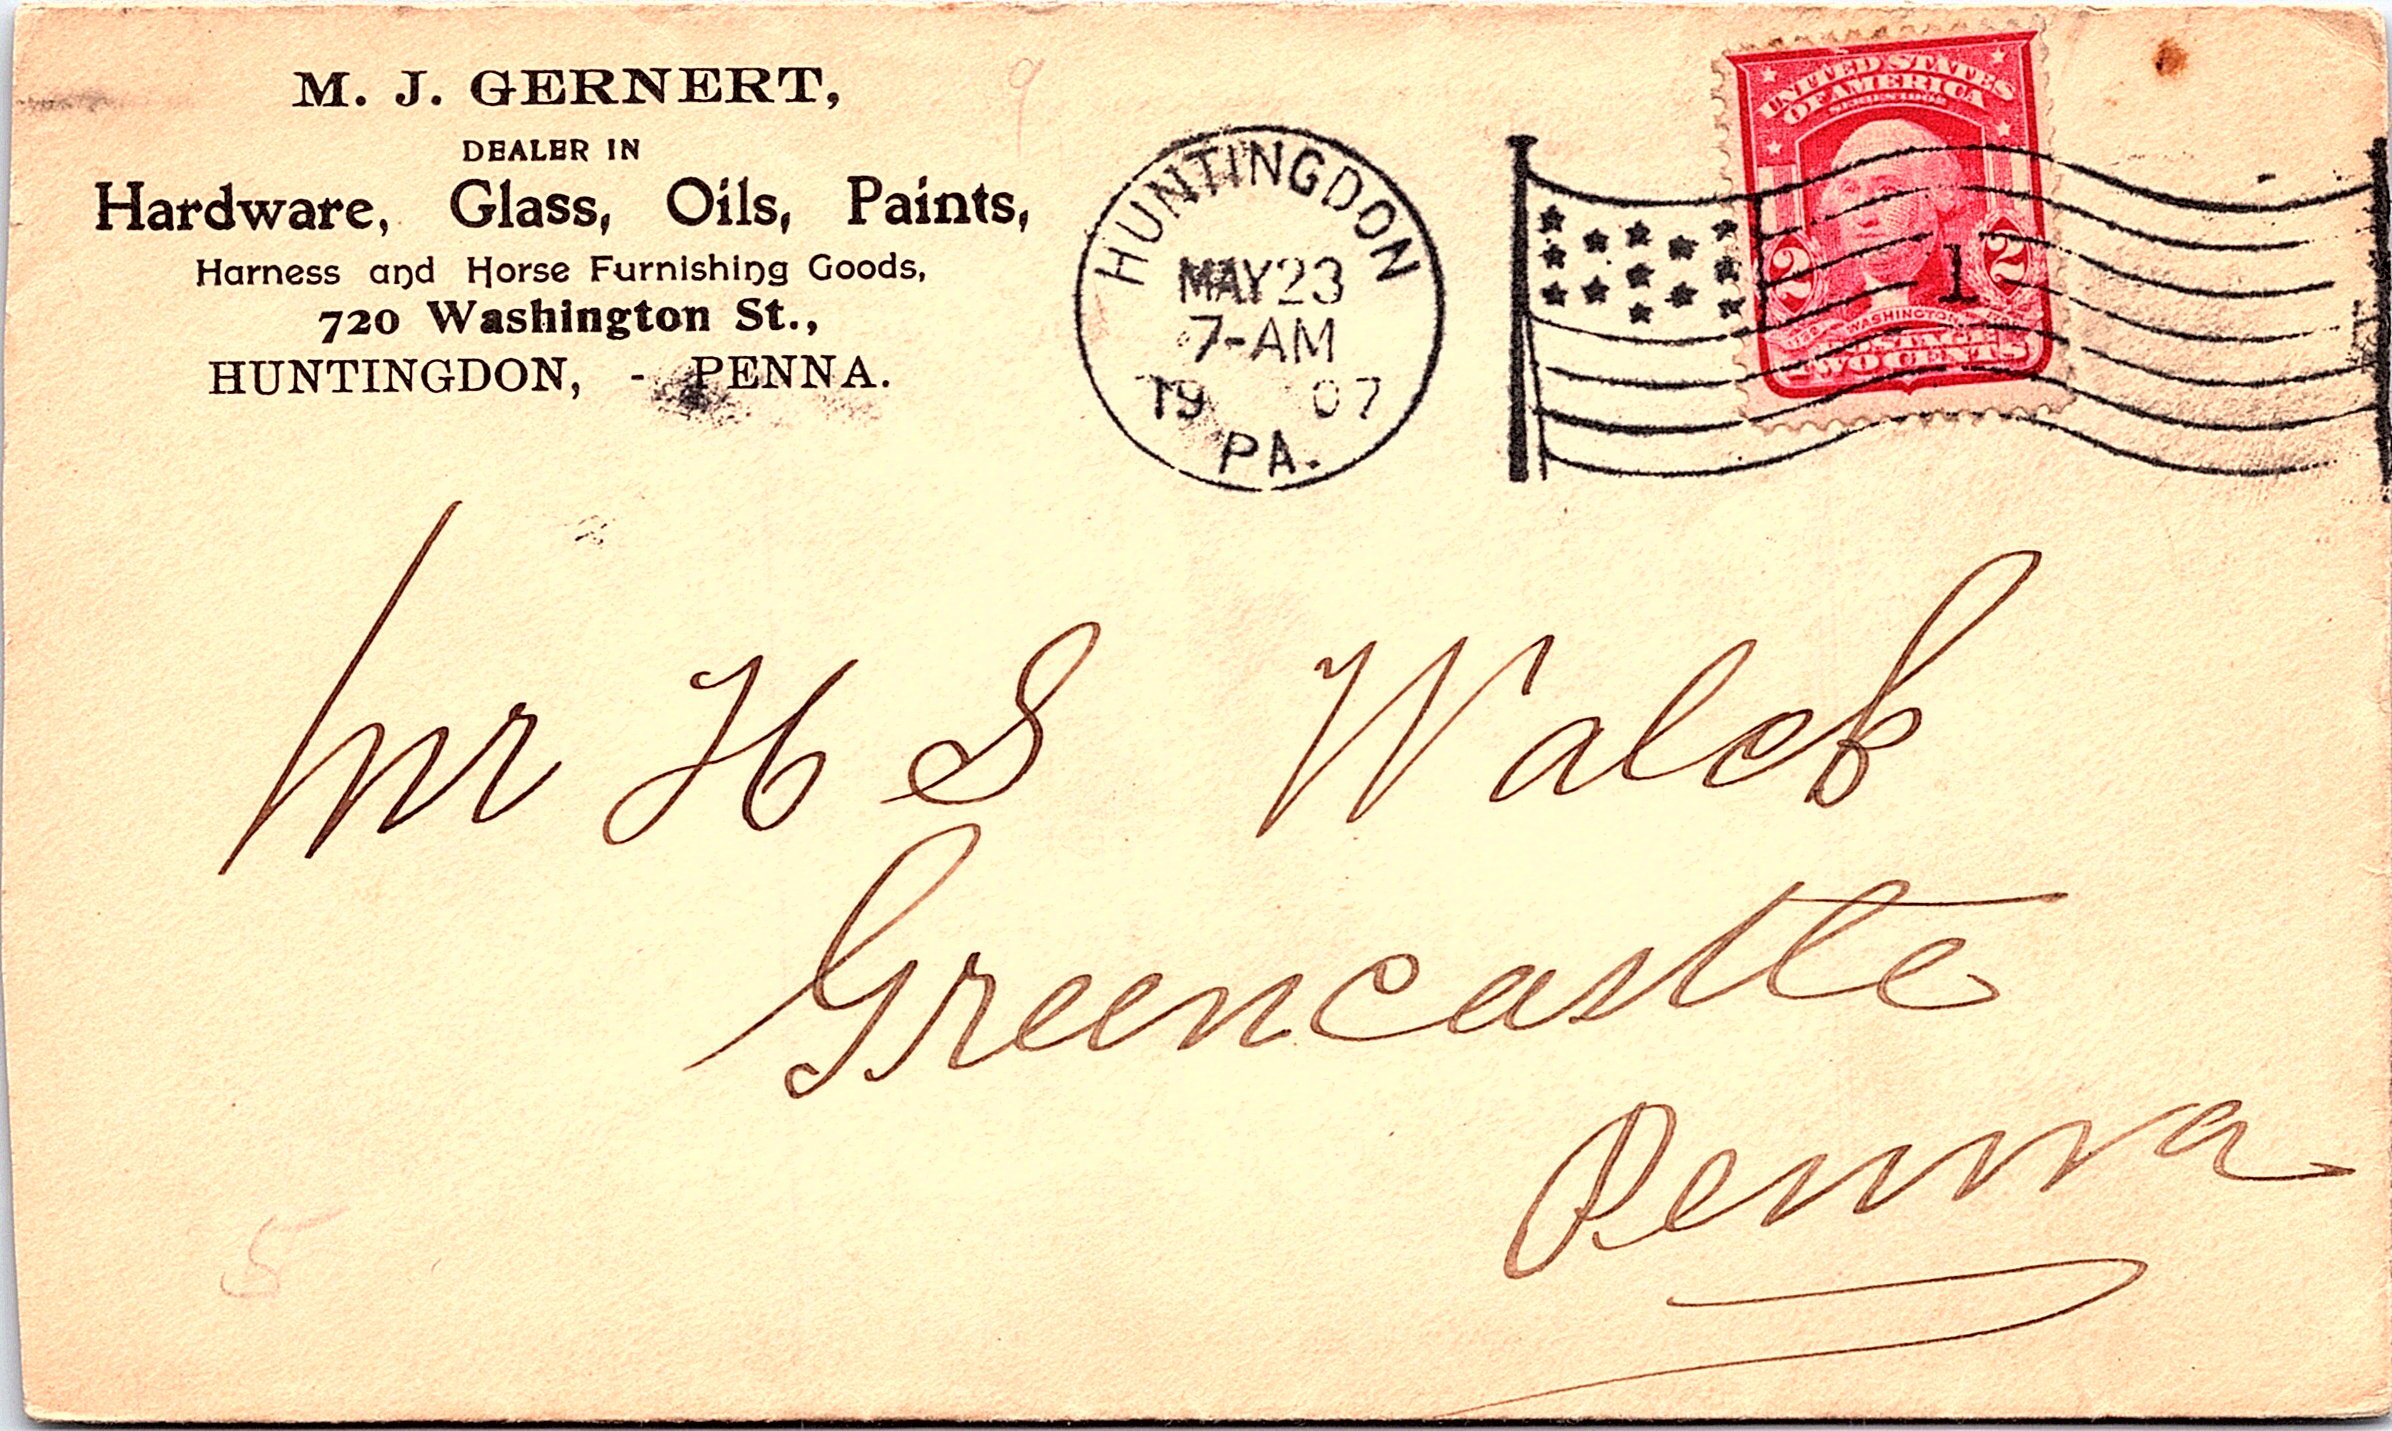 M. J. GERNERT,
DEALER IN
Hardware, Glass, Oils, Paints,
Harness and Horse Furnishing Goods,
720 Washington St.,
HUNTINGDON, - PENNA.
HUNTINGDON
MAY 23
7-AM
19 07
PA.
UNITED STATES
OF AMERICA
SERIES 1902
2 1 2
WASHINGTON
POSTAGE
TWO CENTS
Mr H S Walck
Greencastle
Penna
5